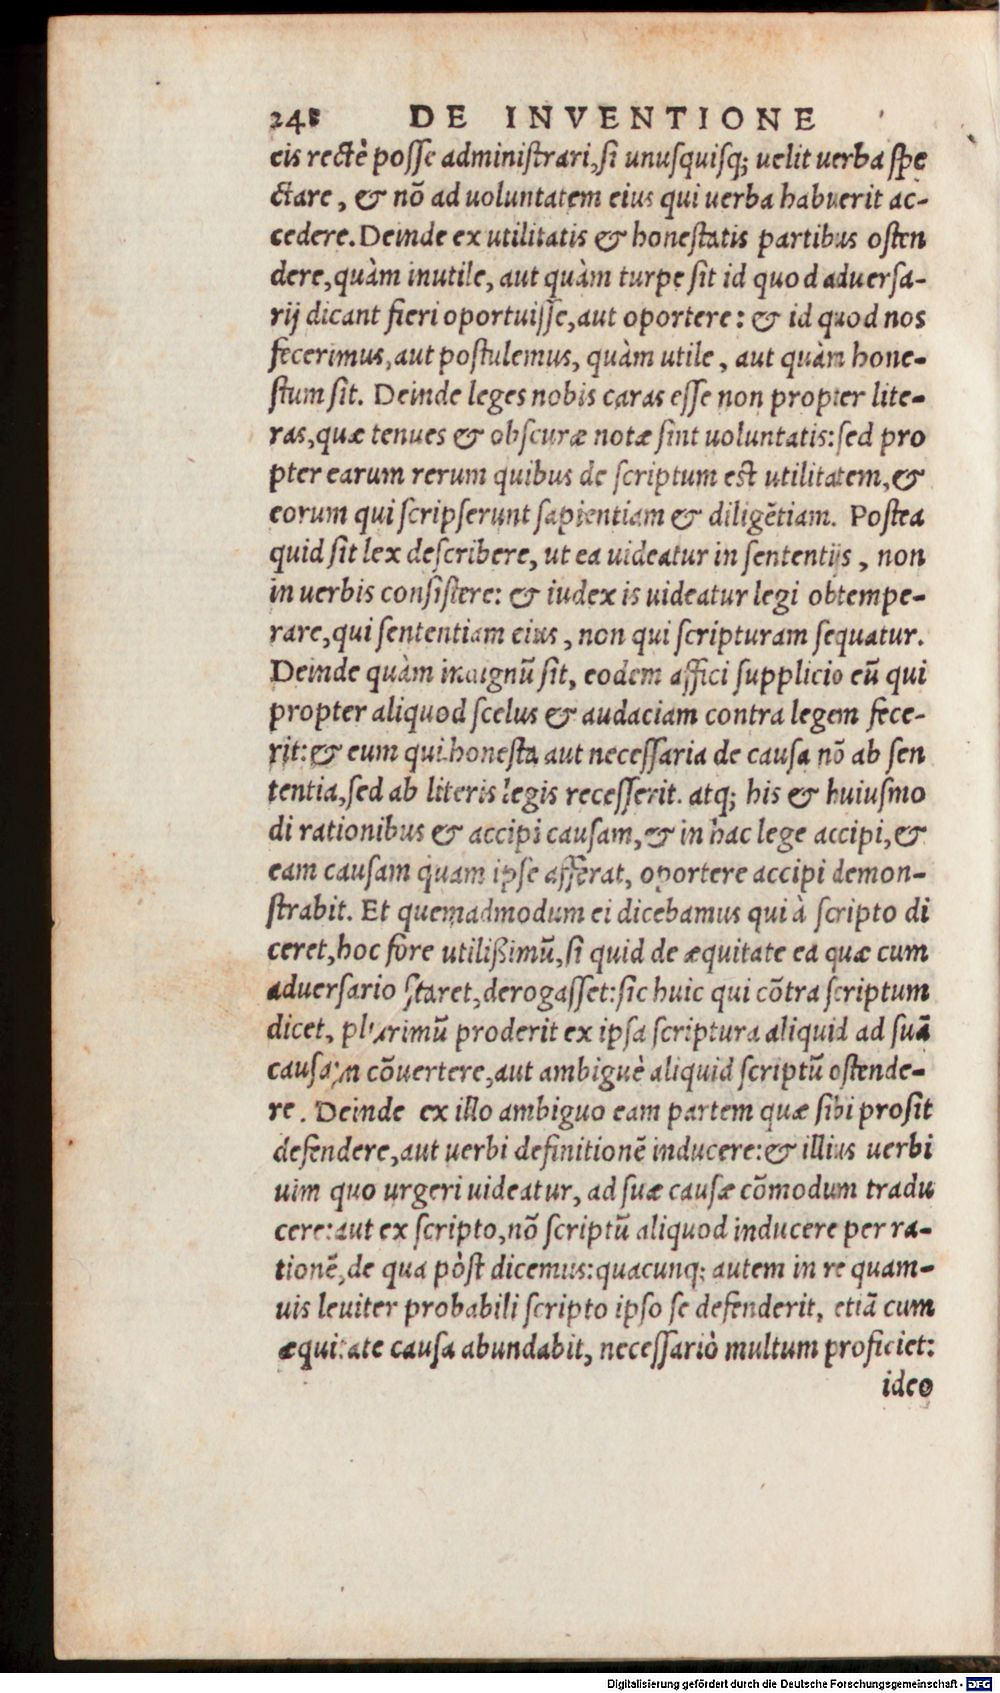 248 DE INVENTIONE
eis rectè posse administrari, si unusquisq; uelit uerba spe
ctare, & nõ ad uoluntatem eius qui uerba habuerit ac-
cedere. Deinde ex utilitatis & honestatis partibus osten
dere, quàm inutile, aut quàm turpe sit id quod aduersa-
rij dicant fieri oportuisse, aut oportere: & id quod nos
fecerimus, aut postulemus, quàm utile, aut quàm hone-
stum sit. Deinde leges nobis caras esse non propter lite-
ras, quæ tenues & obscuræ notæ sint uoluntatis: sed pro
pter earum rerum quibus de scriptum est utilitatem, &
eorum qui scripserunt sapientiam & diligẽtiam. Postea
quid sit lex describere, ut ea uideatur in sententijs, non
in uerbis consistere: & iudex is uideatur legi obtempe-
rare, qui sententiam eius, non qui scripturam sequatur.
Deinde quàm indignũ sit, eodem affici supplicio eũ qui
propter aliquod scelus & audaciam contra legem fece-
rit: & eum qui honesta aut necessaria de causa nõ ab sen
tentia, sed ab literis legis recesserit. atq; his & huiusmo
di rationibus & accipi causam, & in hac lege accipi, &
eam causam quam ipse afferat, oportere accipi demon-
strabit. Et quemadmodum ei dicebamus qui à scripto di
ceret, hoc fore utilißimũ, si quid de æquitate ea quæ cum
aduersario staret, derogasset: sic huic qui cõtra scriptum
dicet, plurimũ proderit ex ipsa scriptura aliquid ad suã
causam cõuertere, aut ambiguè aliquid scriptũ ostende-
re. Deinde ex illo ambiguo eam partem quæ sibi prosit
defendere, aut uerbi definitionẽ inducere: & illius uerbi
uim quo urgeri uideatur, ad suæ causæ cõmodum tradu
cere: aut ex scripto, nõ scriptũ aliquod inducere per ra-
tionẽ, de qua pòst dicemus: quacunq; autem in re quam-
uis leuiter probabili scripto ipso se defenderit, etiã cum
æquitate causa abundabit, necessariò multum proficiet:
ideo
Digitalisierung gefördert durch die Deutsche Forschungsgemeinschaft - DFG